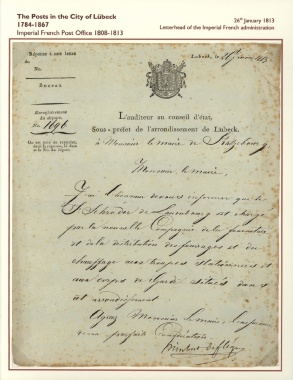 The Posts in the City of Lübeck
1784-1867
Imperial French Post Office 1808-1813
26th January 1813
Letterhead of the Imperial French administration
Réponse à une lettre
du
No.
Bureau
Enregistrement
du départ.
No. 1696
On est prié de rappeler,
dans la réponse, la date
et le No. du départ.
Lubeck, le 26 janvier 1813
L'auditeur au conseil d'état,
Sous-préfet de l'arrondissement de Lubeck.
à Monsieur le maire de Ratzebourg
Monsieur le maire,
J'ai l'honneur de vous informer que le
S. Schröder de Lunebourg est chargé
par la nouvelle Compagnie de la fourniture
et de la distribution des fourages et du
chauffage aux troupes stationnées et
aux corps de garde situés dans
cet arrondissement
Agréez Monsieur le maire,
de ma parfaite Considération